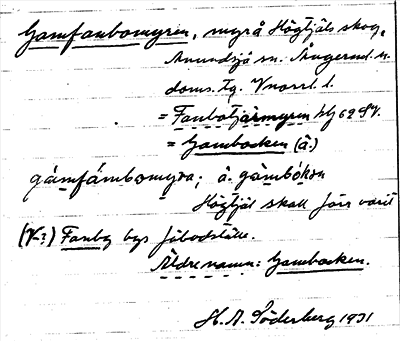 Gamfanbomyren, myrå Högtjäls skog,
Anundsjö sn. Ångermd. n.
doms. tg. Vnorrl. l.
= Fanbotjärmyren blg 62 SV.
= Gambacken (å.)
gámfámbomyra; å. gàmbókkɐn
Högtjäl skall förr varit
(V:) Fanby bys fäbodställe.
Äldre namn: Gambacken.
H. A. Söderberg 1931